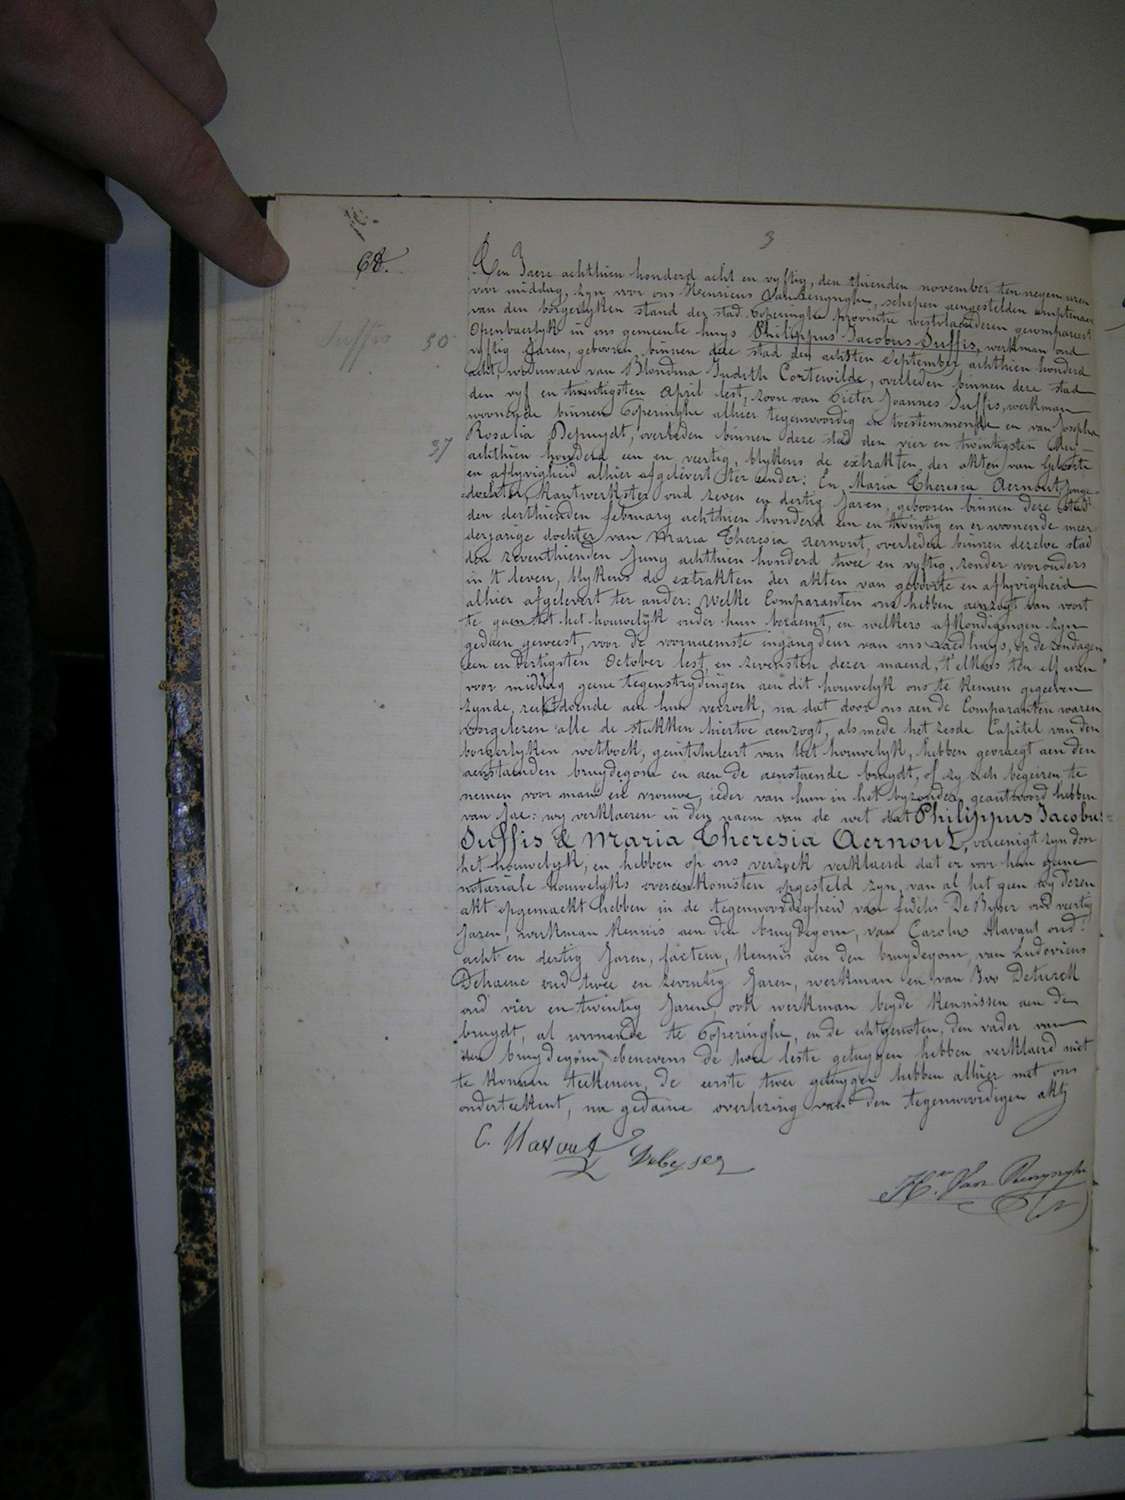 3
68.
Suffis 50
37
Den Jaere achthien honderd acht en vyftig, den thienden november ten negen uren
voor middag, zyn voor ons Henricus Van Renynghe, schepen aengestelden amptenaer
van den borgerlyken stand der stad Poperinghe provintie westvlaenderen gecompareert
Openbaerlyk in ons gemeente huys Philippus Jacobus Suffis, werkman oud
vyftig Jaren, gebooren binnen deze stad den achtsten September achthien honderd
acht, weduwaer van Blondina Judith Cortewilde, overleden binnen deze stad
den vyf en twintigsten April lest, zoon van Pieter Joannes Suffis, werkman
woonende binnen Poperinghe alhier tegenwoordig en toestemmende en van Josepha
Rosalia Depuydt, overleden binnen deze stad den vier en twintigsten Mey
achthien honderd een en veertig, blykens de extrakten der akten van geboorte
en aflyvigheid alhier afgelevert ter ander: En Maria Theresia Aernout, jonge
dochter, kantwerkster oud zeven en dertig Jaren, gebooren binnen deze stad
den derthienden february achthien honderd een en twintig en er woonende meer
derjarige dochter van Maria Theresia Aernout, overleden binnen dezelve stad
den zeventhienden Juny achthien honderd twee en vyftig, zonder voorouders
in 't leven, blykens de extrakten der akten van geboorte en aflyvigheid
alhier afgelevert ter ander: Welke Comparanten ons hebben aenzogt van voort
te gaen tot het houwelyk onder hun beraemt, en welkers afkondigingen zyn
gedaen geweest, voor de voornaemste ingangdeur van ons raedhuys, op de zondagen
een en dertigsten October lest, en zevensten dezer maend, t'elkens ten elf uren
voor middag geene tegenstrydingen aen dit houwelyk ons te kennen gegeeven
zynde, regtdoende aen hun verzoek, na dat door ons aen de Comparanten waren
voorgelezen alle de stukken hiertoe aenzogt, als mede het zesde Capitel van den
borgerlyken wetboek, geintituleert van het houwelyk, hebben gevraegt aen den
aenstaenden bruydegom en aen de aenstaende bruydt, of zy zich begeiren te
nemen voor man en vrouwe, ieder van hun in het byzonder geantwoord hebben
van Jae: wy verklaeren in den naem van de wet dat Philippus Jacobus
Suffis & Maria Theresia Aernout, vereenigt zyn door
het houwelyk, en hebben op ons verzoek verklaerd dat er voor hun geene
notariale houwelyks overeenkomsten opgesteld zyn, van al het geen wy dezen
akt opgemaekt hebben in de tegenwoordigheid van Fidelis De Byser oud veertig
Jaren, werkman kennis aen den bruydegom, van Carolus Mavaut oud
acht en dertig Jaren, facteur, kennis aen den bruydegom, van Ludovicus
Dehaene oud twee en zeventig Jaren, werkman en van Bvo Deturck
oud vier en twintig Jaren, ook werkman beyde kennissen aen de
bruydt, al woonende te Poperinghe, en de echtgenoten, den vader van
den bruydegom, ebenevens de twee leste getuygen hebben verklaerd niet
te konnen teekenen, de eerste twee getuygen hebben alhier met ons
onderteekent, na gedaene overlezing van den tegenwoordigen akt
C. Mavaut Debyser
H. Van Renynghe